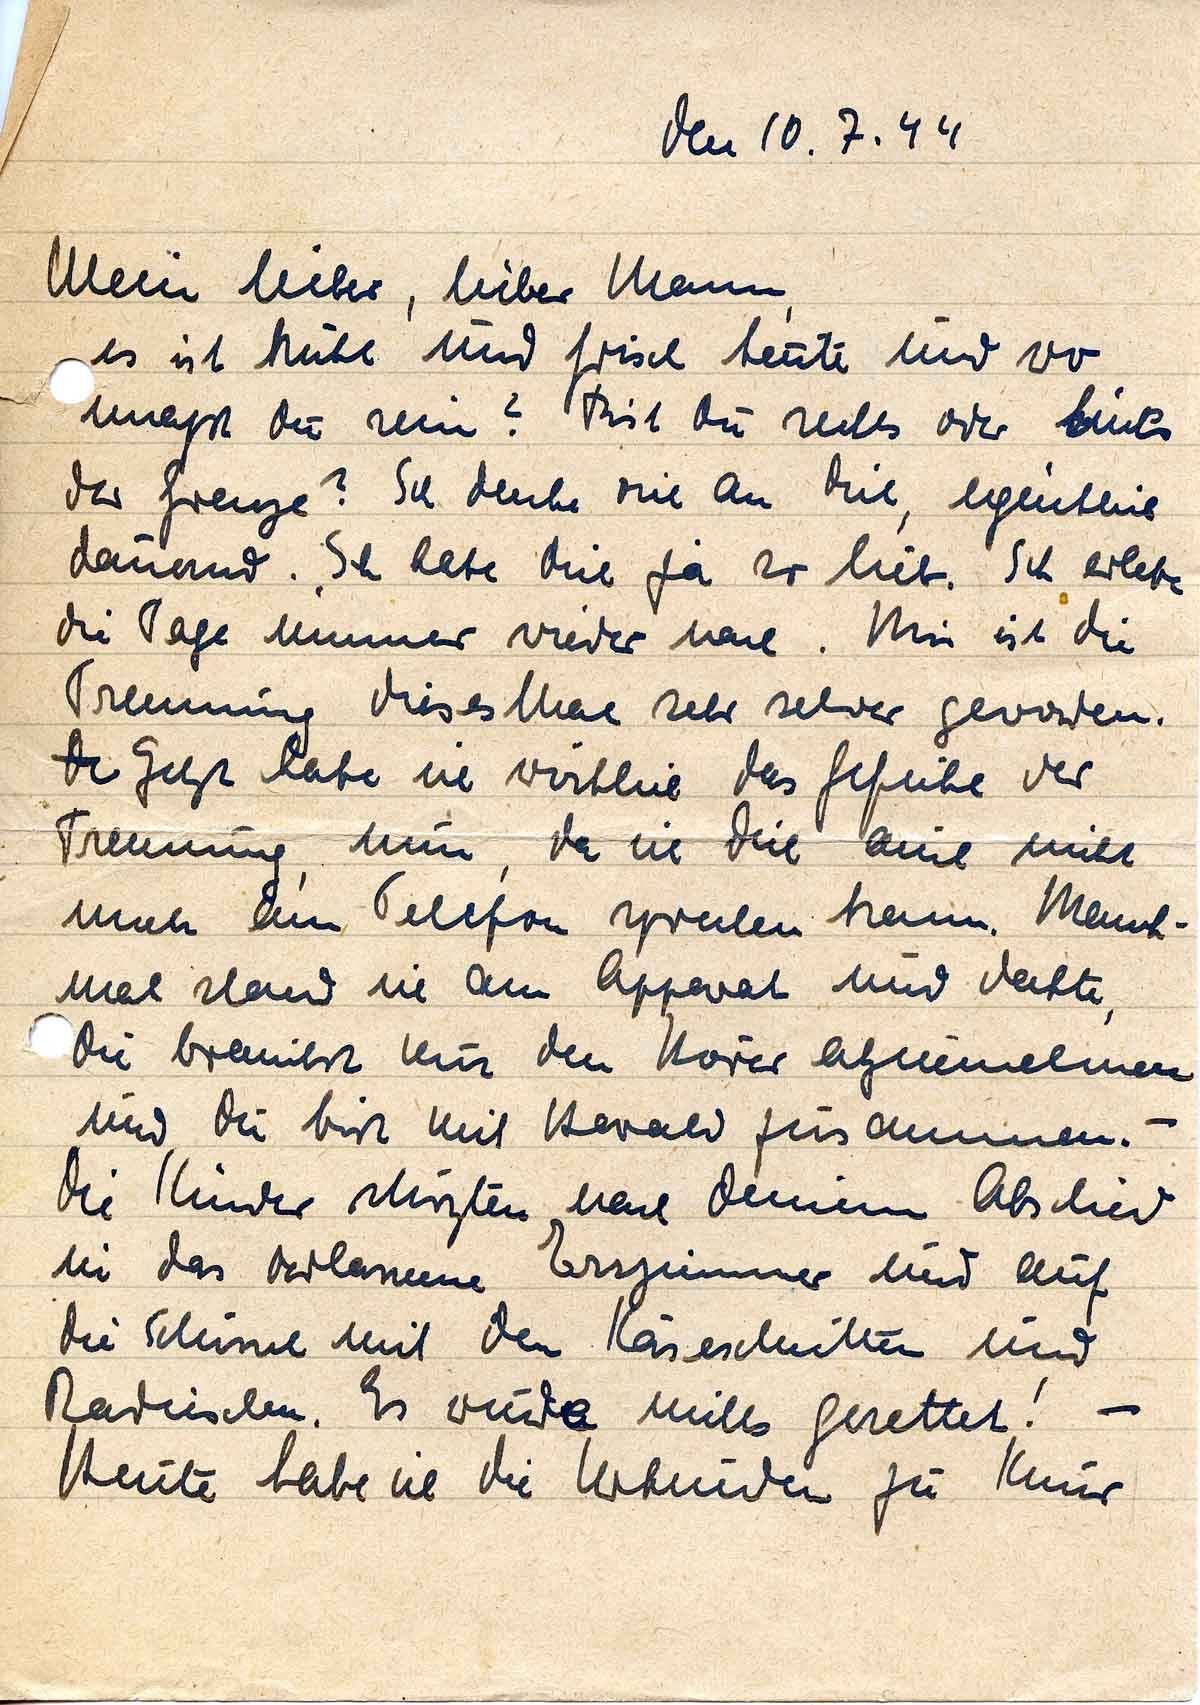 den 10. 7. 44
Mein lieber, lieber Mann,
es ist kühl und frisch heute und wo
magst du sein? Bist du rechts oder links
der Grenze? Ich denke viel an dich, eigentlich
dauernd. Ich habe dich ja so lieb. Ich erlebe
die Tage immer wieder nach. Mir ist die
Trennung dieses Mal sehr schwer geworden.
Jetzt habe ich wirklich das Gefühl der
Trennung, nun, da ich dich auch nicht
mehr am Telefon sprechen kann. Manch-
mal stand ich am Apparat und dachte,
du brauchst nur den Hörer abzunehmen
und du bist mit Harald zusammen. –
Die Kinder stürzten nach deinem Abschied
in das verlassene Esszimmer und auf
die Schüssel mit den Käseschnitten und
Radieschen. Es wurde nichts gerettet! –
Heute habe ich die Urkunden zu